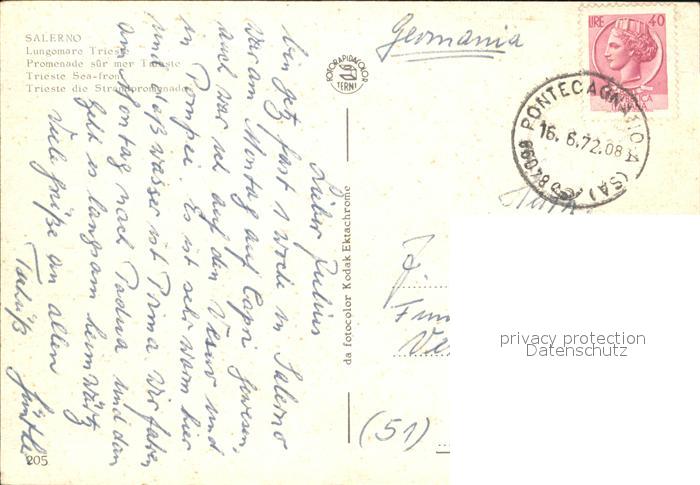 SALERNO
Lungomare Trieste
Promenade sûr mer Trieste
Trieste Sea-front
Trieste die Strandpromenade
Lieber Julius
bin jetzt fast 1 Woche in Salerno
war am Montag auf Capri gewesen,
auch war ich auf den Vesuv und
in Pompei Es ist sehr warm hier
und daß wasser ist Prima wir fahren
am Montag nach Padua und dan
geht es langsam heimwärtz
Viele grüße an allen
Tschüß
205
FOTORAPIDACOLOR
TERNI
da fotocolor Kodak Ektachrome
Germania
LIRE 40
PONTECAGNANO
16.6.72.08
(SA)
84098
J.
(51)
privacy protection
Datenschutz